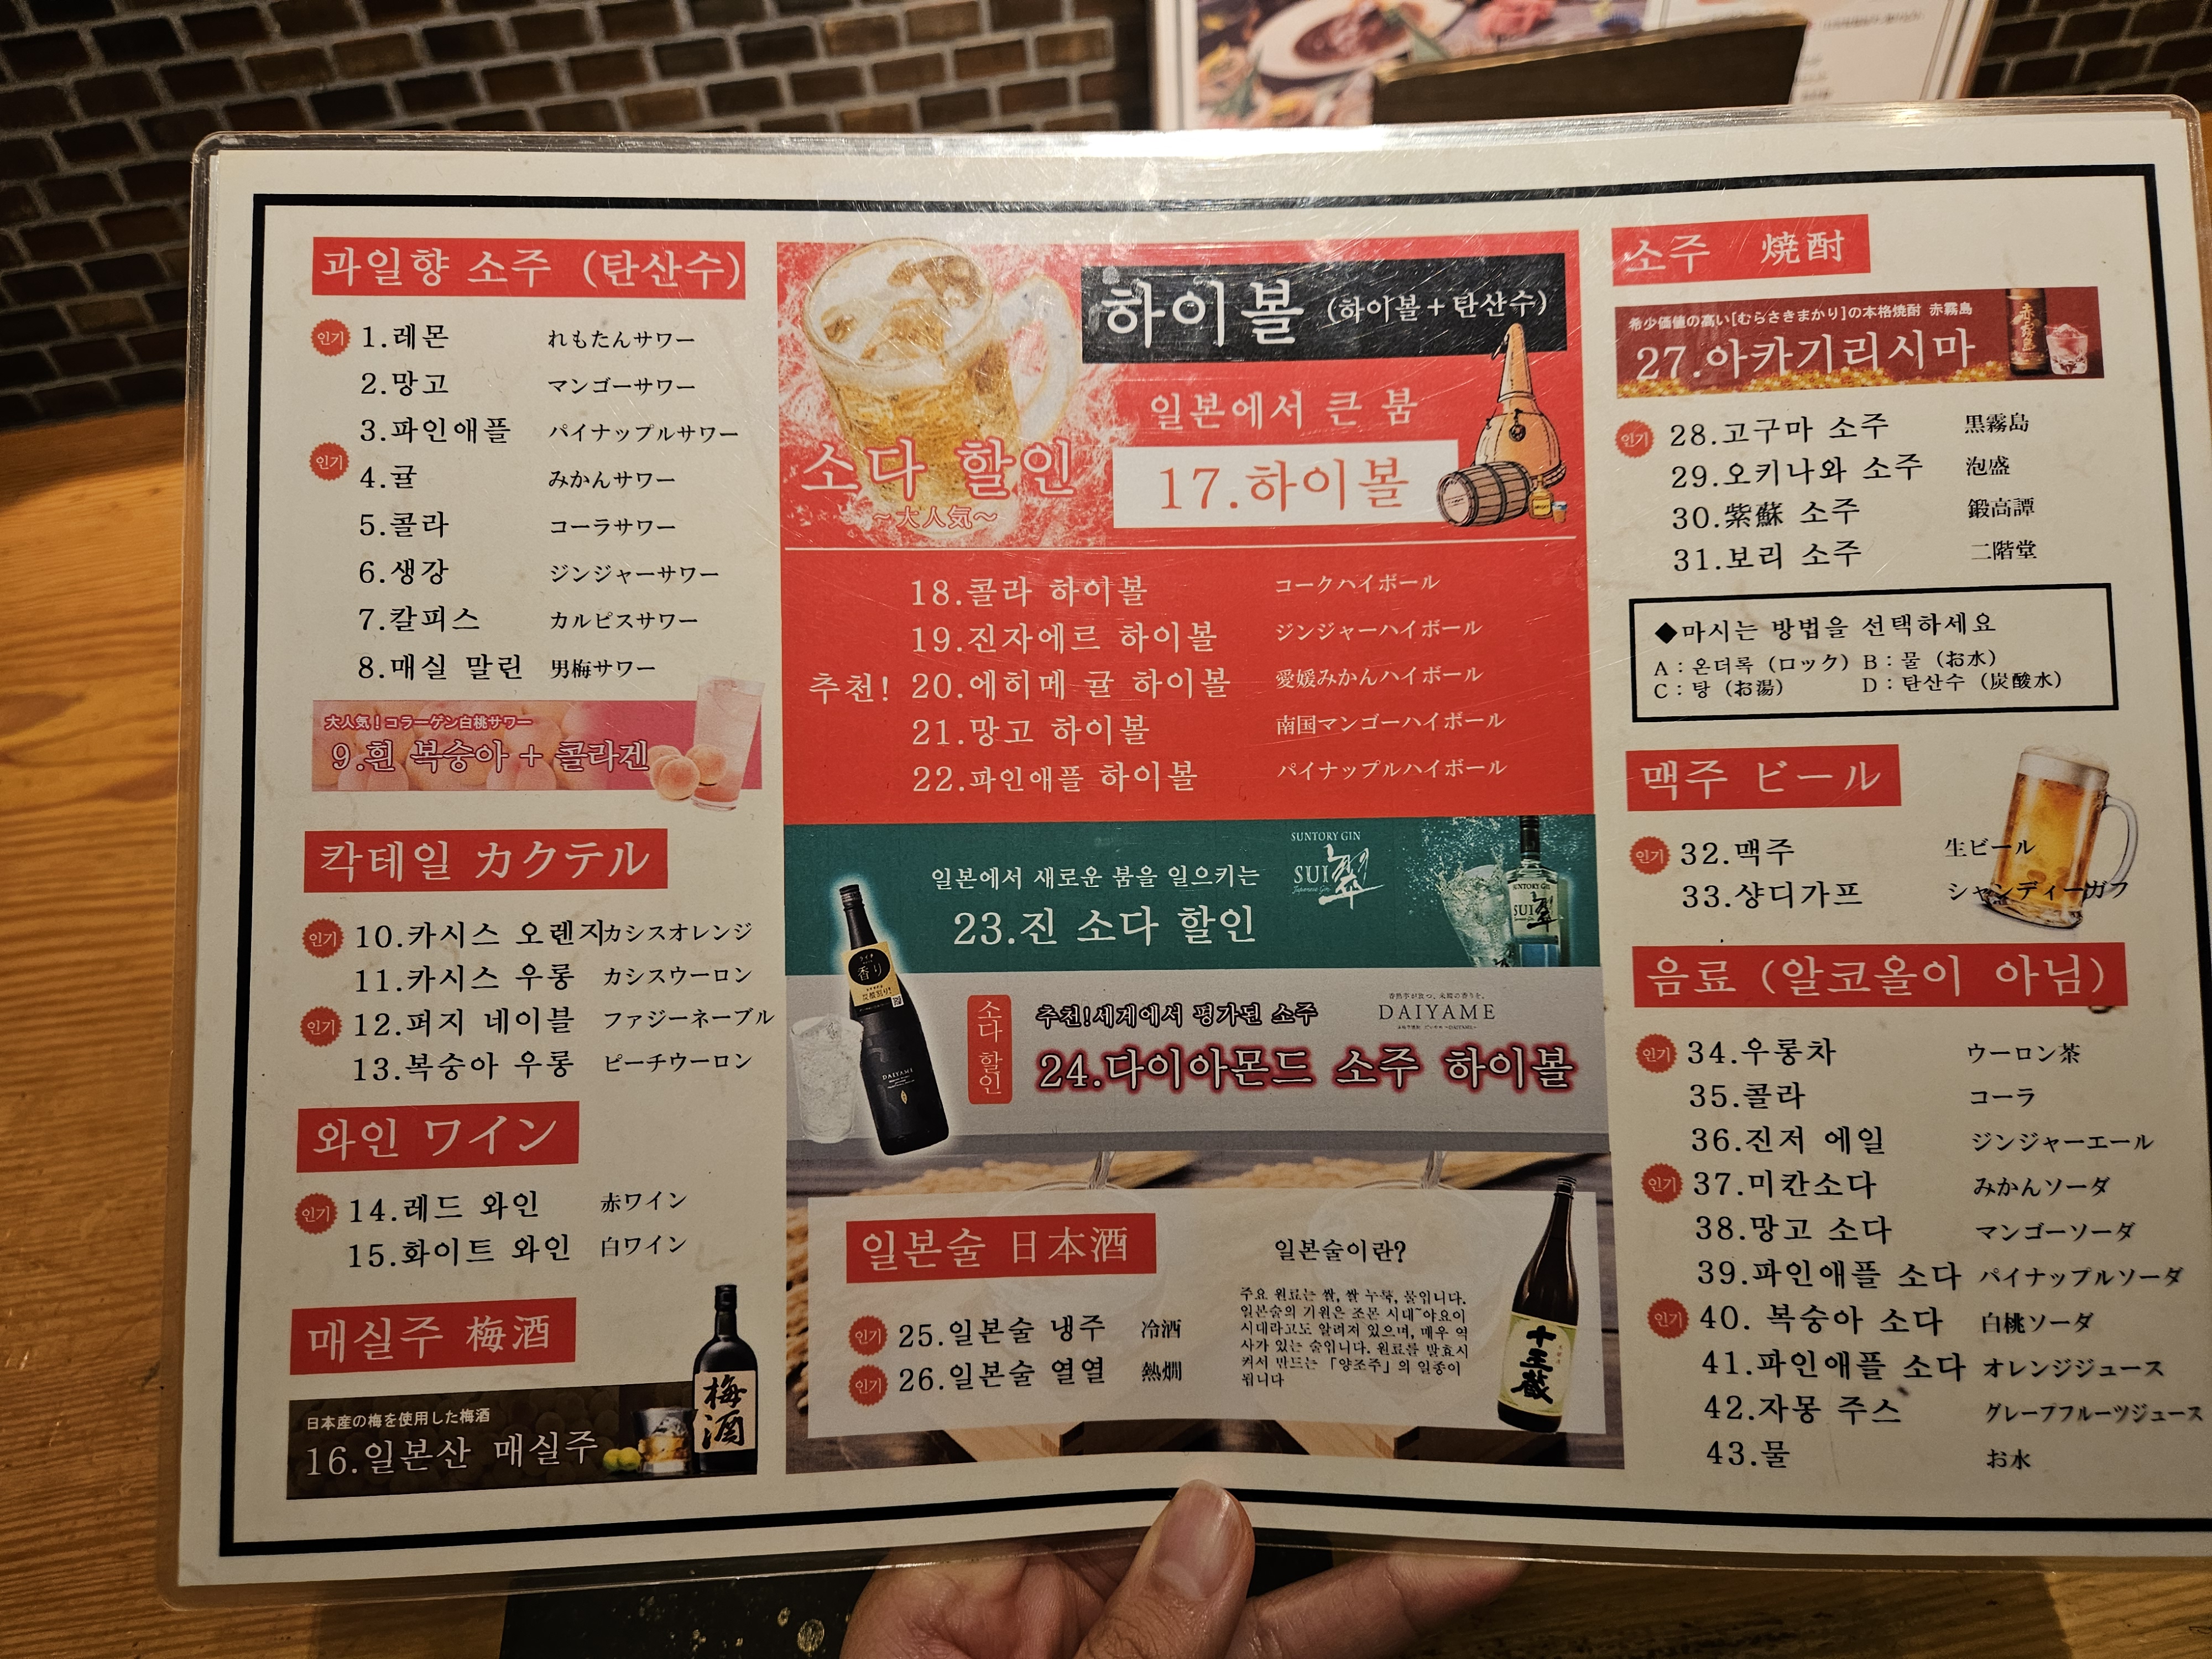 과일향 소주 (탄산수)
인기 1.레몬 れもたんサワー
2.망고 マンゴーサワー
3.파인애플 パイナップルサワー
인기 4.귤 みかんサワー
5.콜라 コーラサワー
6.생강 ジンジャーサワー
7.칼피스 カルピスサワー
8.매실 말린 男梅サワー
大人気!コラーゲン白桃サワー
9.흰 복숭아 + 콜라겐
칵테일 カクテル
인기 10.카시스 오렌지 カシスオレンジ
11.카시스 우롱 カシスウーロン
인기 12.퍼지 네이블 ファジーネーブル
13.복숭아 우롱 ピーチウーロン
와인 ワイン
인기 14.레드 와인 赤ワイン
15.화이트 와인 白ワイン
매실주 梅酒
日本産の梅を使用した梅酒
16.일본산 매실주
梅酒
하이볼 (하이볼+탄산수)
일본에서 큰 붐
소다 할인
~大人気~
17.하이볼
18.콜라 하이볼 コークハイボール
19.진자에르 하이볼 ジンジャーハイボール
추천! 20.에히메 귤 하이볼 愛媛みかんハイボール
21.망고 하이볼 南国マンゴーハイボール
22.파인애플 하이볼 パイナップルハイボール
SUNTORY GIN
SUI 翠
Japanese Gin
일본에서 새로운 붐을 일으키는
23.진 소다 할인
SUNTORY GIN
SUI 翠
香り
DAIYAME
소다 할인
추천!세계에서 평가된 소주
DAIYAME
24.다이아몬드 소주 하이볼
일본술 日本酒
인기 25.일본술 냉주 冷酒
인기 26.일본술 열열 熱燗
일본술이란?
주요 원료는 쌀, 쌀 누룩, 물입니다.
일본술의 기원은 조몬 시대~야요이
시대라고도 알려져 있으며, 매우 역
사가 있는 술입니다. 원료를 발효시
켜서 만드는 「양조주」의 일종이
됩니다
十五蔵
소주 焼酎
希少価値の高い[むらさきまかり]の本格焼酎 赤霧島
27.아카기리시마
赤霧島
인기 28.고구마 소주 黒霧島
29.오키나와 소주 泡盛
30.紫蘇 소주 鍛高譚
31.보리 소주 二階堂
◆마시는 방법을 선택하세요
A:온더록 (ロック) B:물 (お水)
C:탕 (お湯) D:탄산수 (炭酸水)
맥주 ビール
인기 32.맥주 生ビール
33.샹디가프 シャンディーガフ
음료 (알코올이 아님)
인기 34.우롱차 ウーロン茶
35.콜라 コーラ
36.진저 에일 ジンジャーエール
인기 37.미칸소다 みかんソーダ
38.망고 소다 マンゴーソーダ
39.파인애플 소다 パイナップルソーダ
인기 40. 복숭아 소다 白桃ソーダ
41.파인애플 소다 オレンジジュース
42.자몽 주스 グレープフルーツジュース
43.물 お水